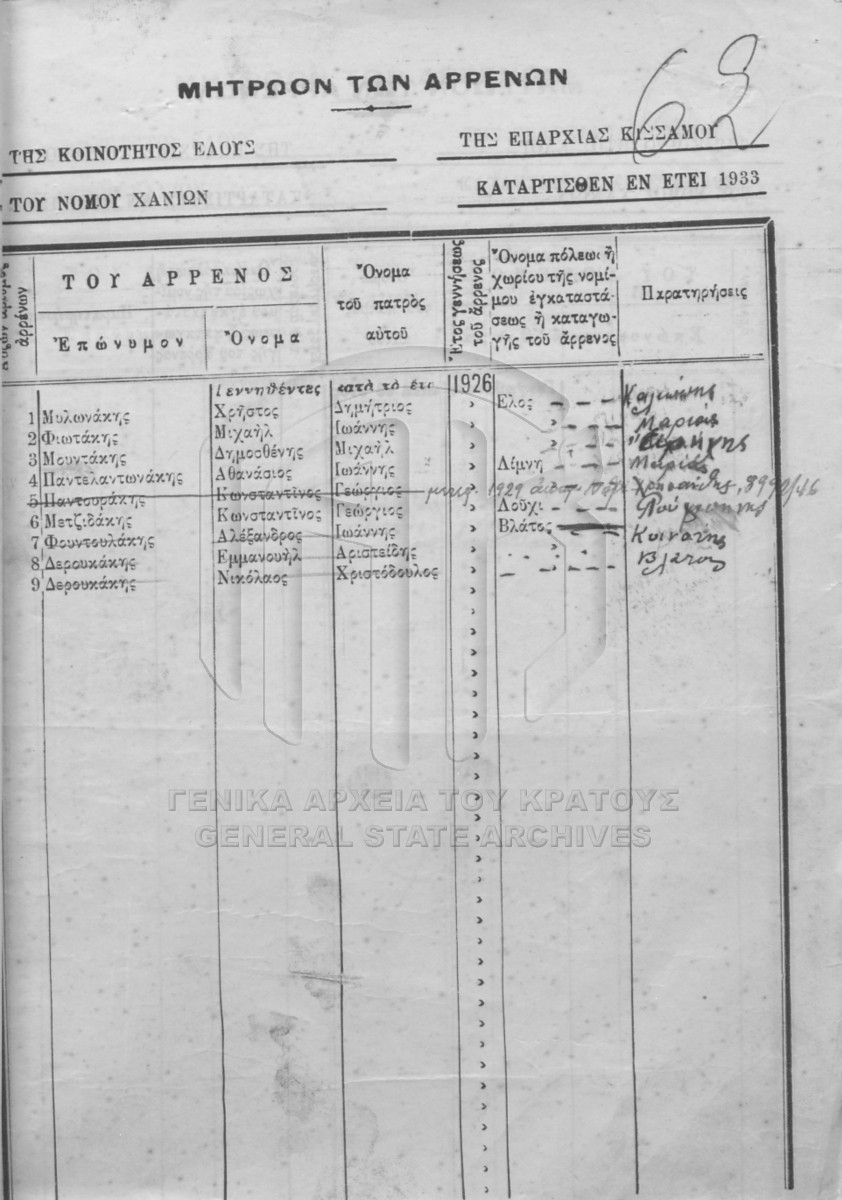 62
ΜΗΤΡΩΟΝ ΤΩΝ ΑΡΡΕΝΩΝ
ΤΗΣ ΚΟΙΝΟΤΗΤΟΣ ΕΛΟΥΣ ΤΗΣ ΕΠΑΡΧΙΑΣ ΚΙΣΣΑΜΟΥ
ΤΟΥ ΝΟΜΟΥ ΧΑΝΙΩΝ ΚΑΤΑΡΤΙΣΘΕΝ ΕΝ ΕΤΕΙ 1933
ἀρρένων
ΤΟΥ ΑΡΡΕΝΟΣ
Ἐπώνυμον Ὄνομα
Ὄνομα
τοῦ πατρὸς
αὐτοῦ
Ἔτος γεννήσεως
τοῦ ἄρρενος
Ὄνομα πόλεως ἢ
χωρίου τῆς νομί-
μου ἐγκαταστά-
σεως ἢ καταγω-
γῆς τοῦ ἄρρενος
Παρατηρήσεις
Γεννηθέντες κατὰ τὸ ἔτο 1926
1 Μυλωνάκης Χρῆστος Δημήτριος Ελος
2 Φιωτάκης Μιχαὴλ Ἰωάννης » Μαρίας
3 Μουντάκης Δημοσθένης Μιχαὴλ » Εἰρήνης
4 Παντελαντωνάκης Ἀθανάσιος Ἰωάννης Λίμνη Μαρίας
5 Παντουράκης Κωνσταντῖνος Γεώργιος 1929 8992/46
6 Μετζιδάκης Κωνσταντῖνος Γεώργιος Λοῦχι
7 Φουντουλάκης Ἀλέξανδρος Ἰωάννης Βλάτος
8 Δερουκάκης Ἐμμανουὴλ Ἀριστείδης »
9 Δερουκάκης Νικόλαος Χριστόδουλος
ΓΕΝΙΚΑ ΑΡΧΕΙΑ ΤΟΥ ΚΡΑΤΟΥΣ
GENERAL STATE ARCHIVES